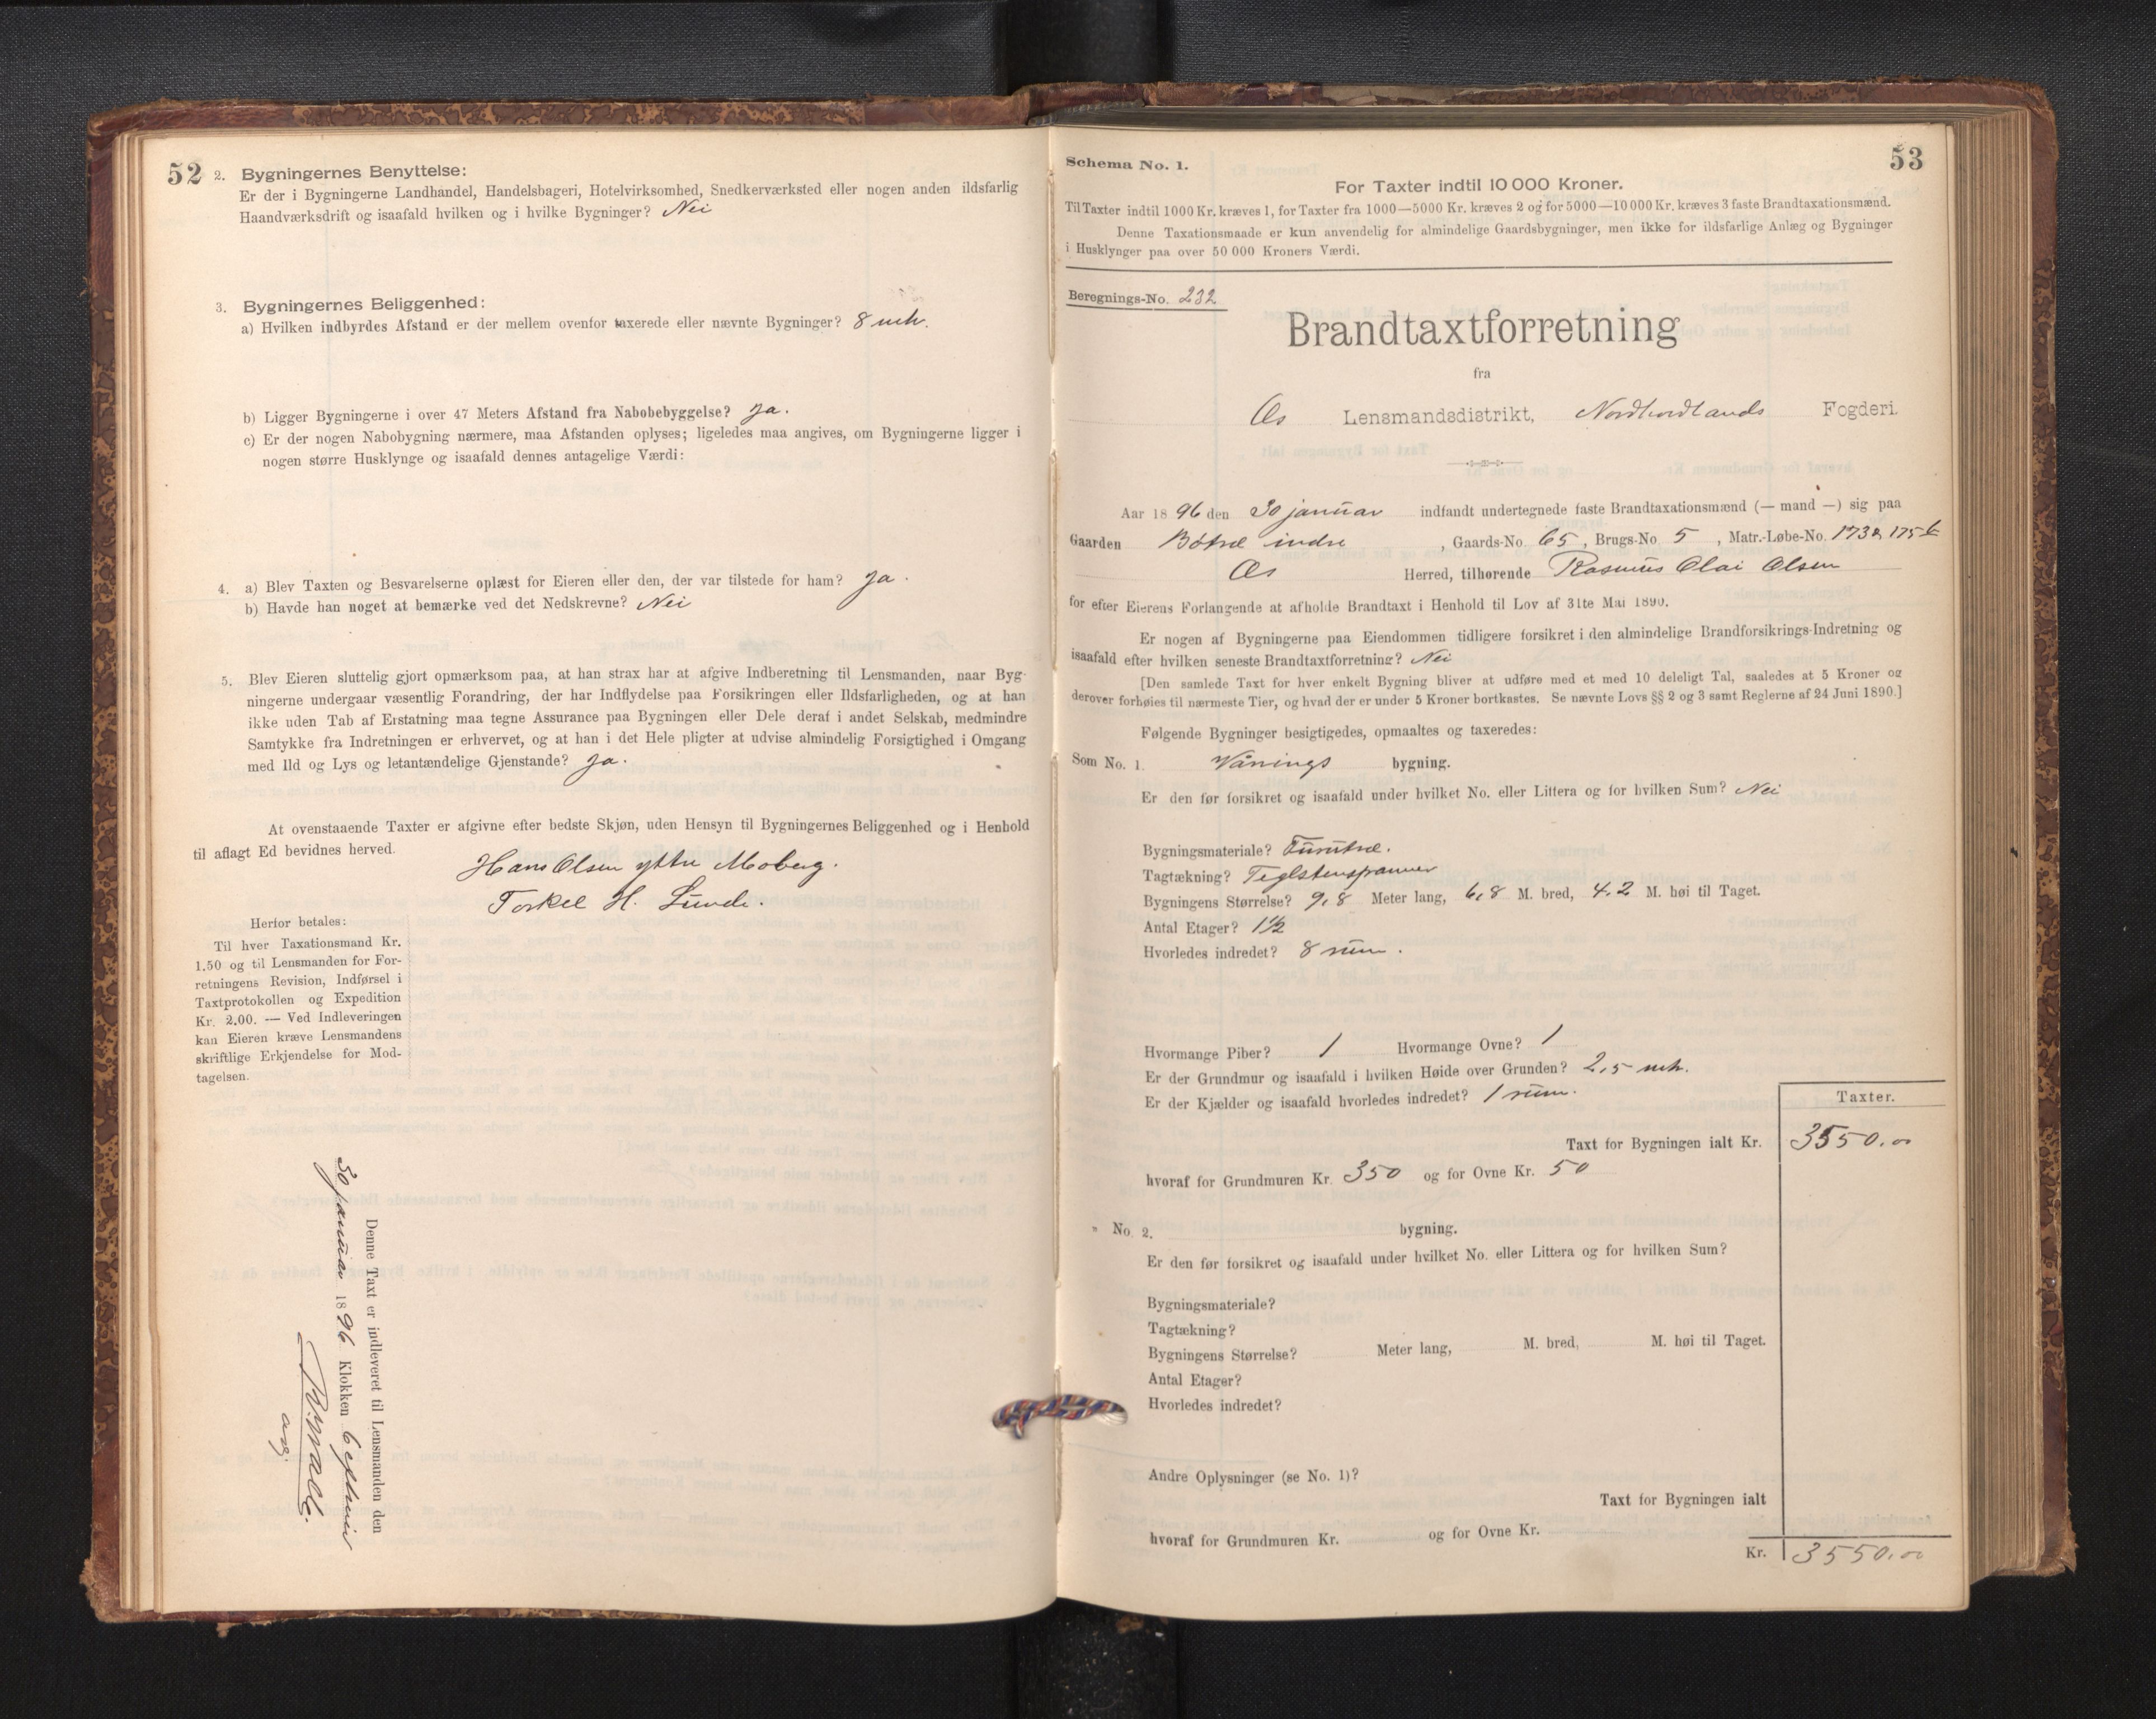 52
2. Bygningernes Benyttelse:
Er der i Bygningerne Landhandel, Handelsbageri, Hotelvirksomhed, Snedkerværksted eller nogen anden ildsfarlig
Haandværksdrift og isaafald hvilken og i hvilke Bygninger? Nei
3. Bygningernes Beliggenhed:
a) Hvilken indbyrdes Afstand er der mellem ovenfor taxerede eller nævnte Bygninger? 8 mtr.
b) Ligger Bygningerne i over 47 Meters Afstand fra Nabobebyggelse? Ja.
c) Er der nogen Nabobygning nærmere, maa Afstanden oplyses; ligeledes maa angives, om Bygningerne ligger i
nogen større Husklynge og isaafald dennes antagelige Værdi:
4. a) Blev Taxten og Besvarelserne oplæst for Eieren eller den, der var tilstede for ham? Ja.
b) Havde han noget at bemærke ved det Nedskrevne? Nei
5. Blev Eieren sluttelig gjort opmærksom paa, at han strax har at afgive Indberetning til Lensmanden, naar Byg-
ningerne undergaar væsentlig Forandring, der har Indflydelse paa Forsikringen eller Ildsfarligheden, og at han
ikke uden Tab af Erstatning maa tegne Assurance paa Bygningen eller Dele deraf i andet Selskab, medmindre
Samtykke fra Indretningen er erhvervet, og at han i det Hele pligter at udvise almindelig Forsigtighed i Omgang
med Ild og Lys og letantændelige Gjenstande? Ja.
At ovenstaaende Taxter er afgivne efter bedste Skjøn, uden Hensyn til Bygningernes Beliggenhed og i Henhold
til aflagt Ed bevidnes herved.
Hans Olsen yttre Moberg.
Torkel H. Lunde.
Herfor betales:
Til hver Taxationsmand Kr.
1.50 og til Lensmanden for For-
retningens Revision, Indførsel i
Taxtprotokollen og Expedition
Kr. 2.00. — Ved Indleveringen
kan Eieren kræve Lensmandens
skriftlige Erkjendelse for Mod-
tagelsen.
Denne Taxt er indleveret til Lensmanden den
30 januar 1896 Klokken 6 eftmd
53
Schema No. 1.
For Taxter indtil 10 000 Kroner.
Til Taxter indtil 1000 Kr. kræves 1, for Taxter fra 1000—5000 Kr. kræves 2 og for 5000—10 000 Kr. kræves 3 faste Brandtaxationsmænd.
Denne Taxationsmaade er kun anvendelig for almindelige Gaardsbygninger, men ikke for ildsfarlige Anlæg og Bygninger
i Husklynger paa over 50 000 Kroners Værdi.
Beregnings-No. 232
Brandtaxtforretning
fra
Os Lensmandsdistrikt, Nordhordlands Fogderi.
Aar 1896 den 30 januar indfandt undertegnede faste Brandtaxationsmænd (— mand —) sig paa
Gaarden indre , Gaards-No. 65, Brugs-No 5 , Matr.-Løbe-No. 173a, 175b
Os Herred, tilhørende Rasmus Olai Olsen
for efter Eierens Forlangende at afholde Brandtaxt i Henhold til Lov af 31te Mai 1890.
Er nogen af Bygningerne paa Eiendommen tidligere forsikret i den almindelige Brandforsikrings-Indretning og
isaafald efter hvilken seneste Brandtaxtforretning? Nei
[Den samlede Taxt for hver enkelt Bygning bliver at udføre med et med 10 deleligt Tal, saaledes at 5 Kroner og
derover forhøies til nærmeste Tier, og hvad der er under 5 Kroner bortkastes. Se nævnte Lovs §§ 2 og 3 samt Reglerne af 24 Juni 1890.]
Følgende Bygninger besigtigedes, opmaaltes og taxeredes:
Som No. 1. Vånings bygning.
Er den før forsikret og isaafald under hvilket No. eller Littera og for hvilken Sum? Nei
Bygningsmateriale? Furutræ.
Tagtækning? Teglstenspanner
Bygningens Størrelse? 9,8 Meter lang, 6,8 M. bred, 4.2 M. høi til Taget.
Antal Etager? 1½
Hvorledes indredet? 8 rum.
Hvormange Piber? 1 Hvormange Ovne? 1
Er der Grundmur og isaafald i hvilken Høide over Grunden? 2,5 mtr.
Er der Kjælder og isaafald hvorledes indredet? 1 rum.
Taxter.
Taxt for Bygningen ialt Kr. 3550.00
hvoraf for Grundmuren Kr. 350 og for Ovne Kr. 50
" No. 2. bygning.
Er den før forsikret og isaafald under hvilket No. eller Littera og for hvilken Sum?
Bygningsmateriale?
Tagtækning?
Bygningens Størrelse? Meter lang, M. bred, M. høi til Taget.
Antal Etager?
Hvorledes indredet?
Andre Oplysninger (se No. 1)?
Taxt for Bygningen ialt
hvoraf for Grundmuren Kr. og for Ovne Kr.
Kr. 3550.00